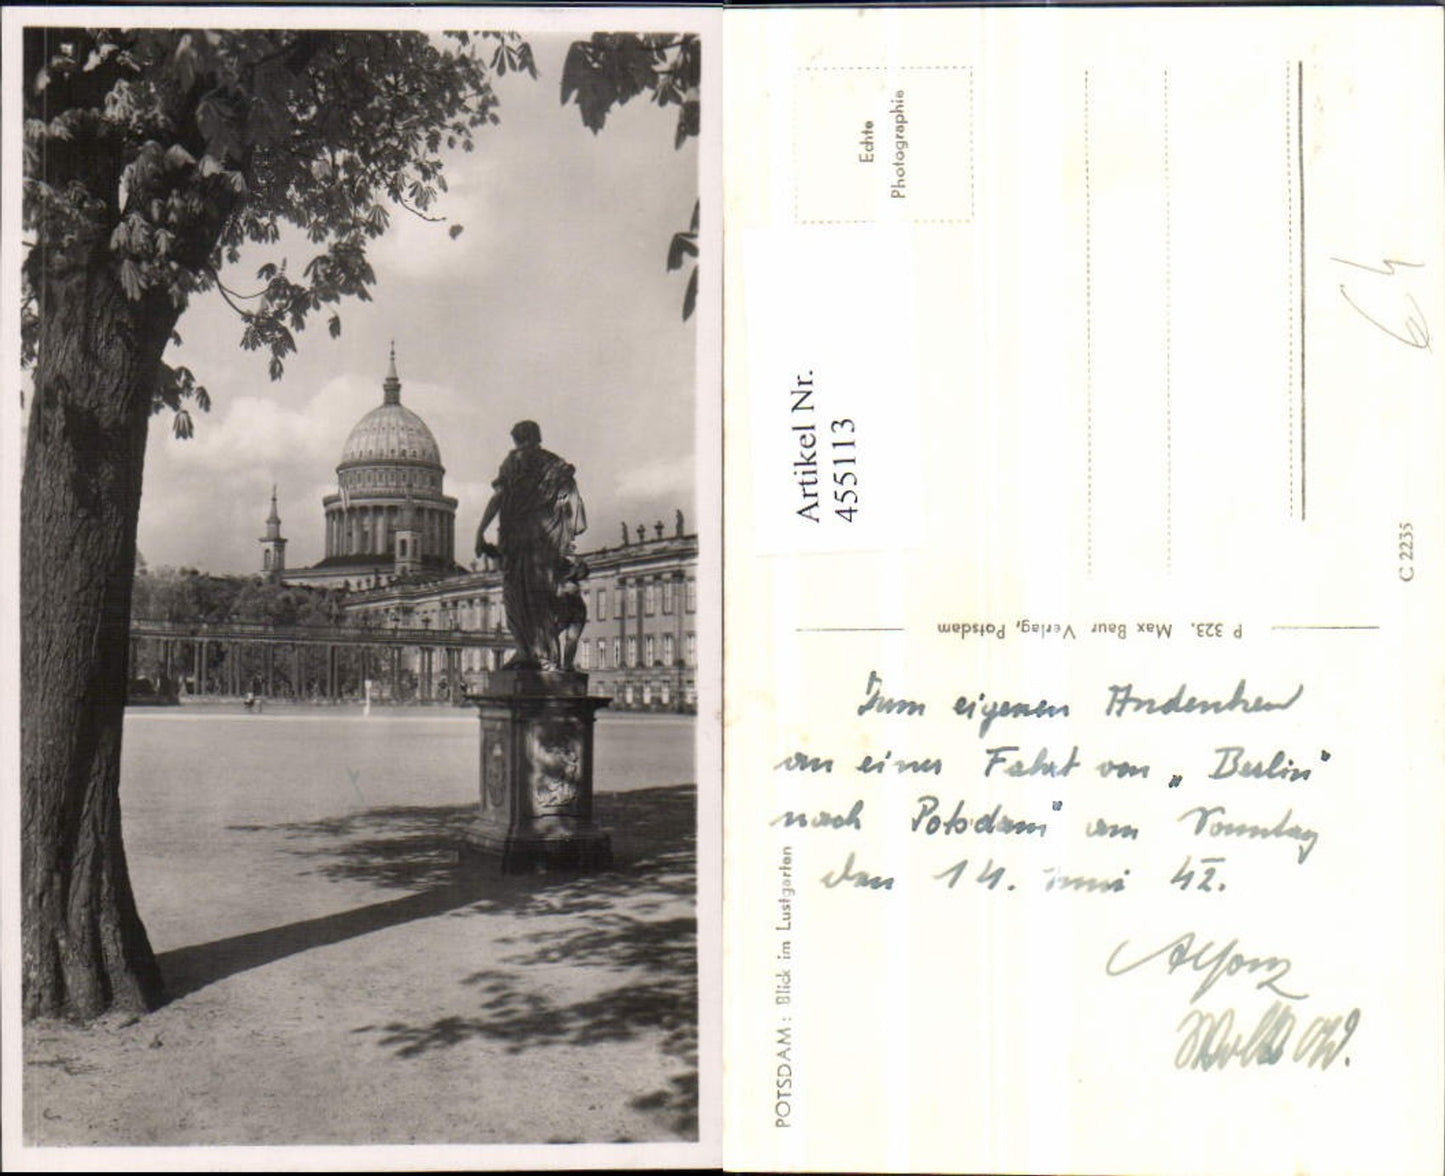 Echte
Photographie
Artikel Nr.
455113
64
C 2235
P 323. Max Baur Verlag, Potsdam
POTSDAM: Blick im Lustgarten
Zum eigenen Andenken
an einer Fahrt von „Berlin"
nach Potsdam" am Sonntag
den 14. Juni 42.
Alfons